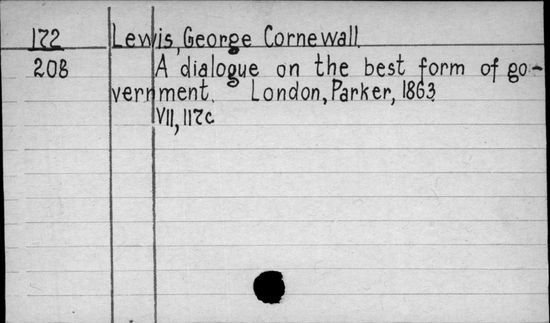 172 Lewis, George Cornewall.
208 A dialogue on the best form of go-
vernment. London, Parker, 1863.
VII, 117c.